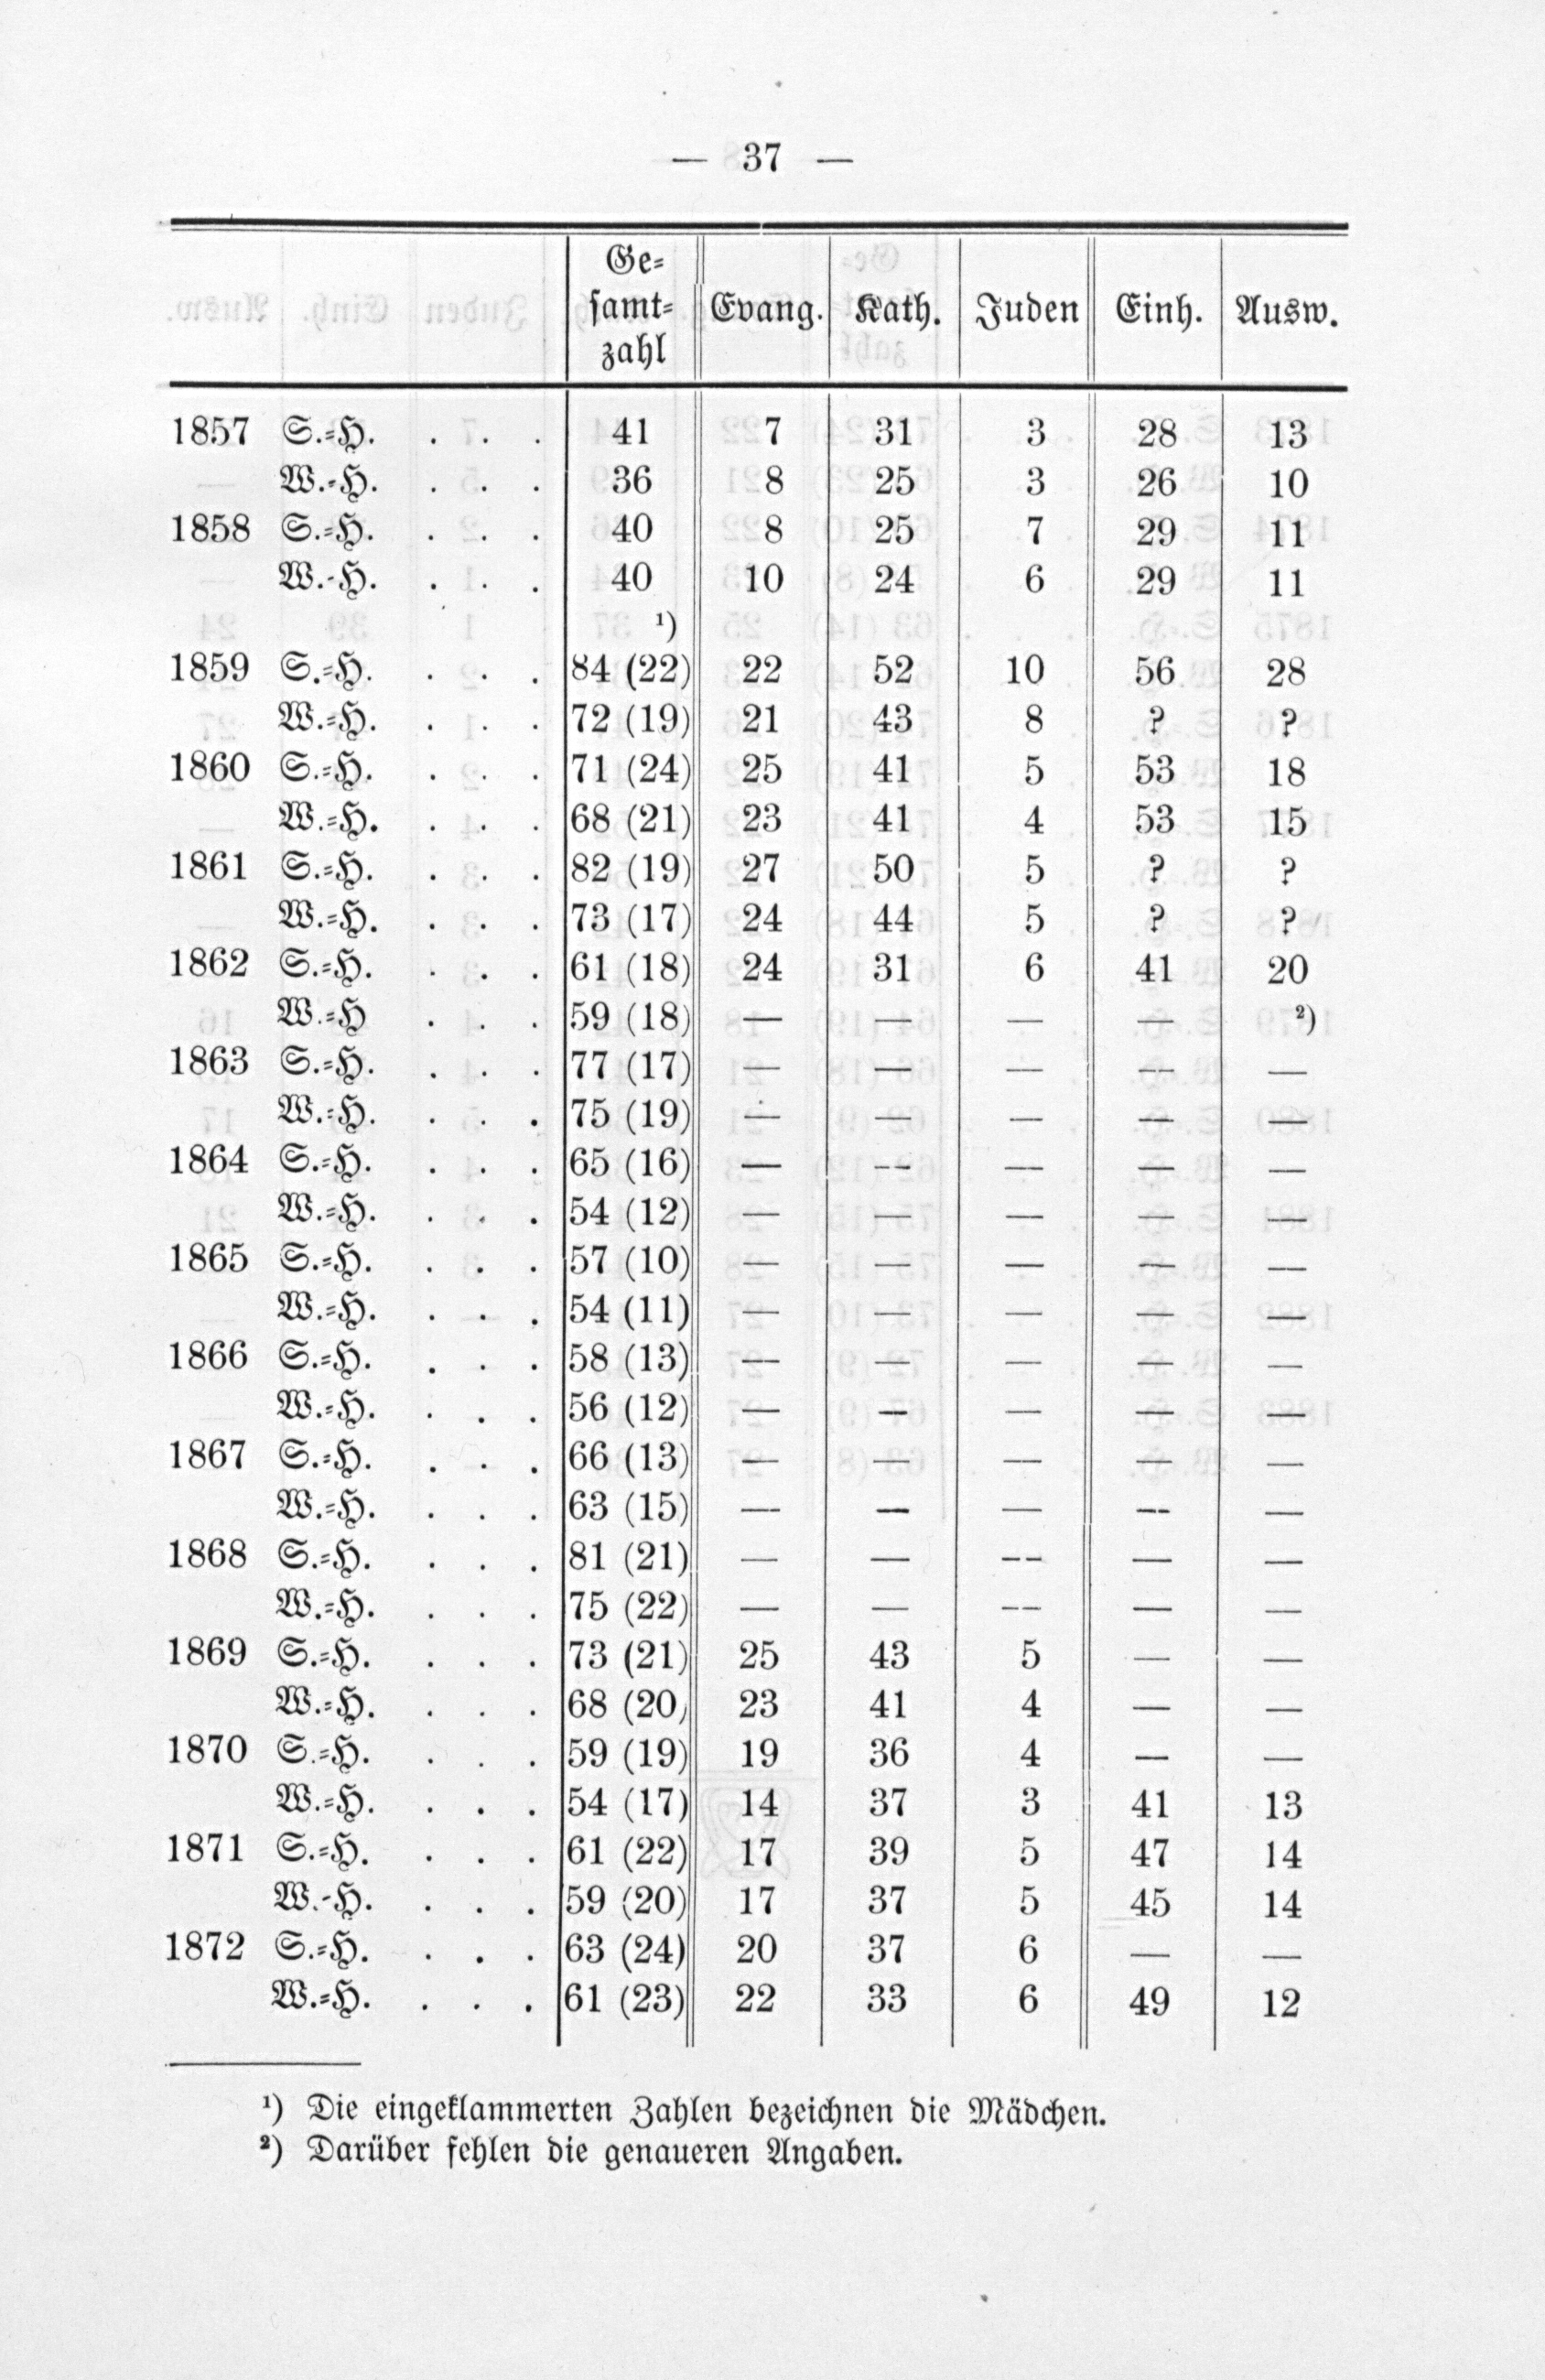 — 37 —
Ge-
samt-
zahl Evang. Kath. Juden Einh. Ausw.
1857 S.-H. . . . 41 7 31 3 28 13
W.-H. . . . 36 8 25 3 26 10
1858 S.-H. . . . 40 8 25 7 29 11
W.-H. . . . 40 10 24 6 29 11
¹)
1859 S.-H. . . . 84 (22) 22 52 10 56 28
W.-H. . . . 72 (19) 21 43 8 ? ?
1860 S.-H. . . . 71 (24) 25 41 5 53 18
W.-H. . . . 68 (21) 23 41 4 53 15
1861 S.-H. . . . 82 (19) 27 50 5 ? ?
W.-H. . . . 73 (17) 24 44 5 ? ?
1862 S.-H. . . . 61 (18) 24 31 6 41 20
W.-H . . . 59 (18) — — — — ²)
1863 S.-H. . . . 77 (17) — — — — —
W.-H. . . . 75 (19) — — — — —
1864 S.-H. . . . 65 (16) — — — — —
W.-H. . . . 54 (12) — — — — —
1865 S.-H. . . . 57 (10) — — — — —
W.-H. . . . 54 (11) — — — — —
1866 S.-H. . . . 58 (13) — — — — —
W.-H. . . . 56 (12) — — — — —
1867 S.-H. . . . 66 (13) — — — — —
W.-H. . . . 63 (15) — — — — —
1868 S.-H. . . . 81 (21) — — — — —
W.-H. . . . 75 (22) — — — — —
1869 S.-H. . . . 73 (21) 25 43 5 — —
W.-H. . . . 68 (20) 23 41 4 — —
1870 S.-H. . . . 59 (19) 19 36 4 — —
W.-H. . . . 54 (17) 14 37 3 41 13
1871 S.-H. . . . 61 (22) 17 39 5 47 14
W.-H. . . . 59 (20) 17 37 5 45 14
1872 S.-H. . . . 63 (24) 20 37 6 — —
W.-H. . . . 61 (23) 22 33 6 49 12
¹) Die eingeklammerten Zahlen bezeichnen die Mädchen.
²) Darüber fehlen die genaueren Angaben.